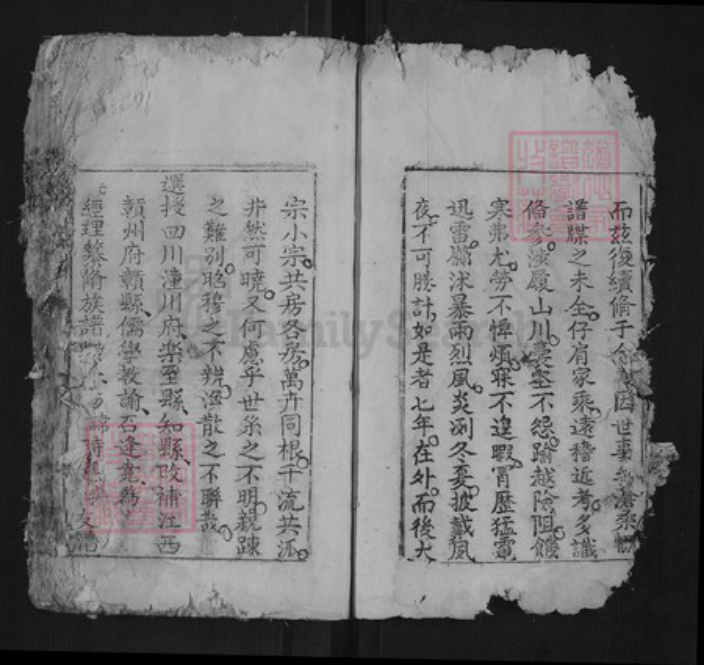 而茲復續脩于 因世事 滄桑慨
譜牒之未全仔肩家乘遠稽近考多識
脩參涉履山川 壑不怨踰越險阻饑
寒弗尤勞不憚煩寐不遑暇冐歷猛電
迅雷 沭暴雨烈風炎冽冬夏披戴風
夜不可勝計如是者七年在外而後大
宗小宗共房各房萬卉同根千流共派
井然可曉又何慮乎世系之不明親踈
之難别昭穆之不辨渙散之不聯哉
選授四川潼川府樂至縣知縣改補江西
贛州府贛縣儒學教諭 逢堯
經理纂脩族譜
FamilySearch